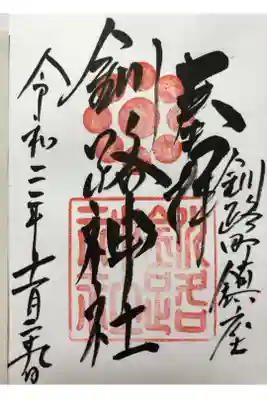 奉拝
釧路町鎮座
釧路神社
令和二年十一月二十九日
釧路神社